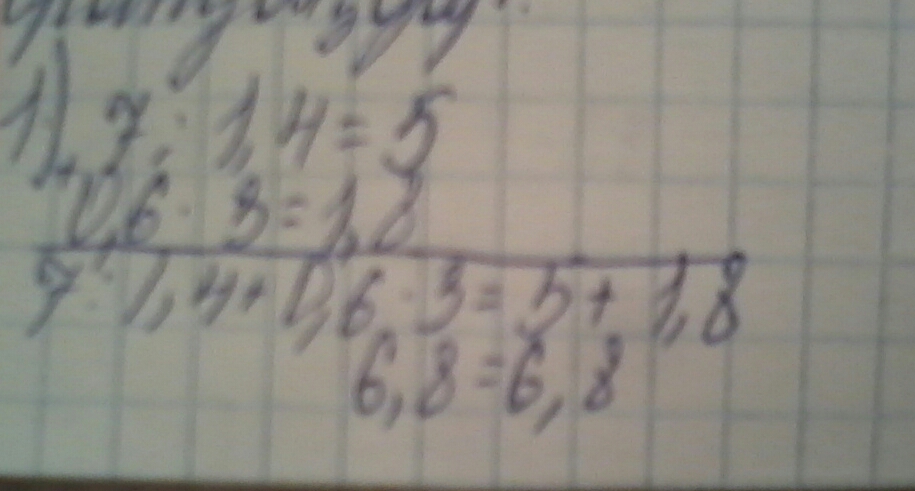 1) 7 : 1,4 = 5
+ 0,6 · 3 = 1,8
7 : 1,4 + 0,6 · 3 = 5 + 1,8
6,8 = 6,8